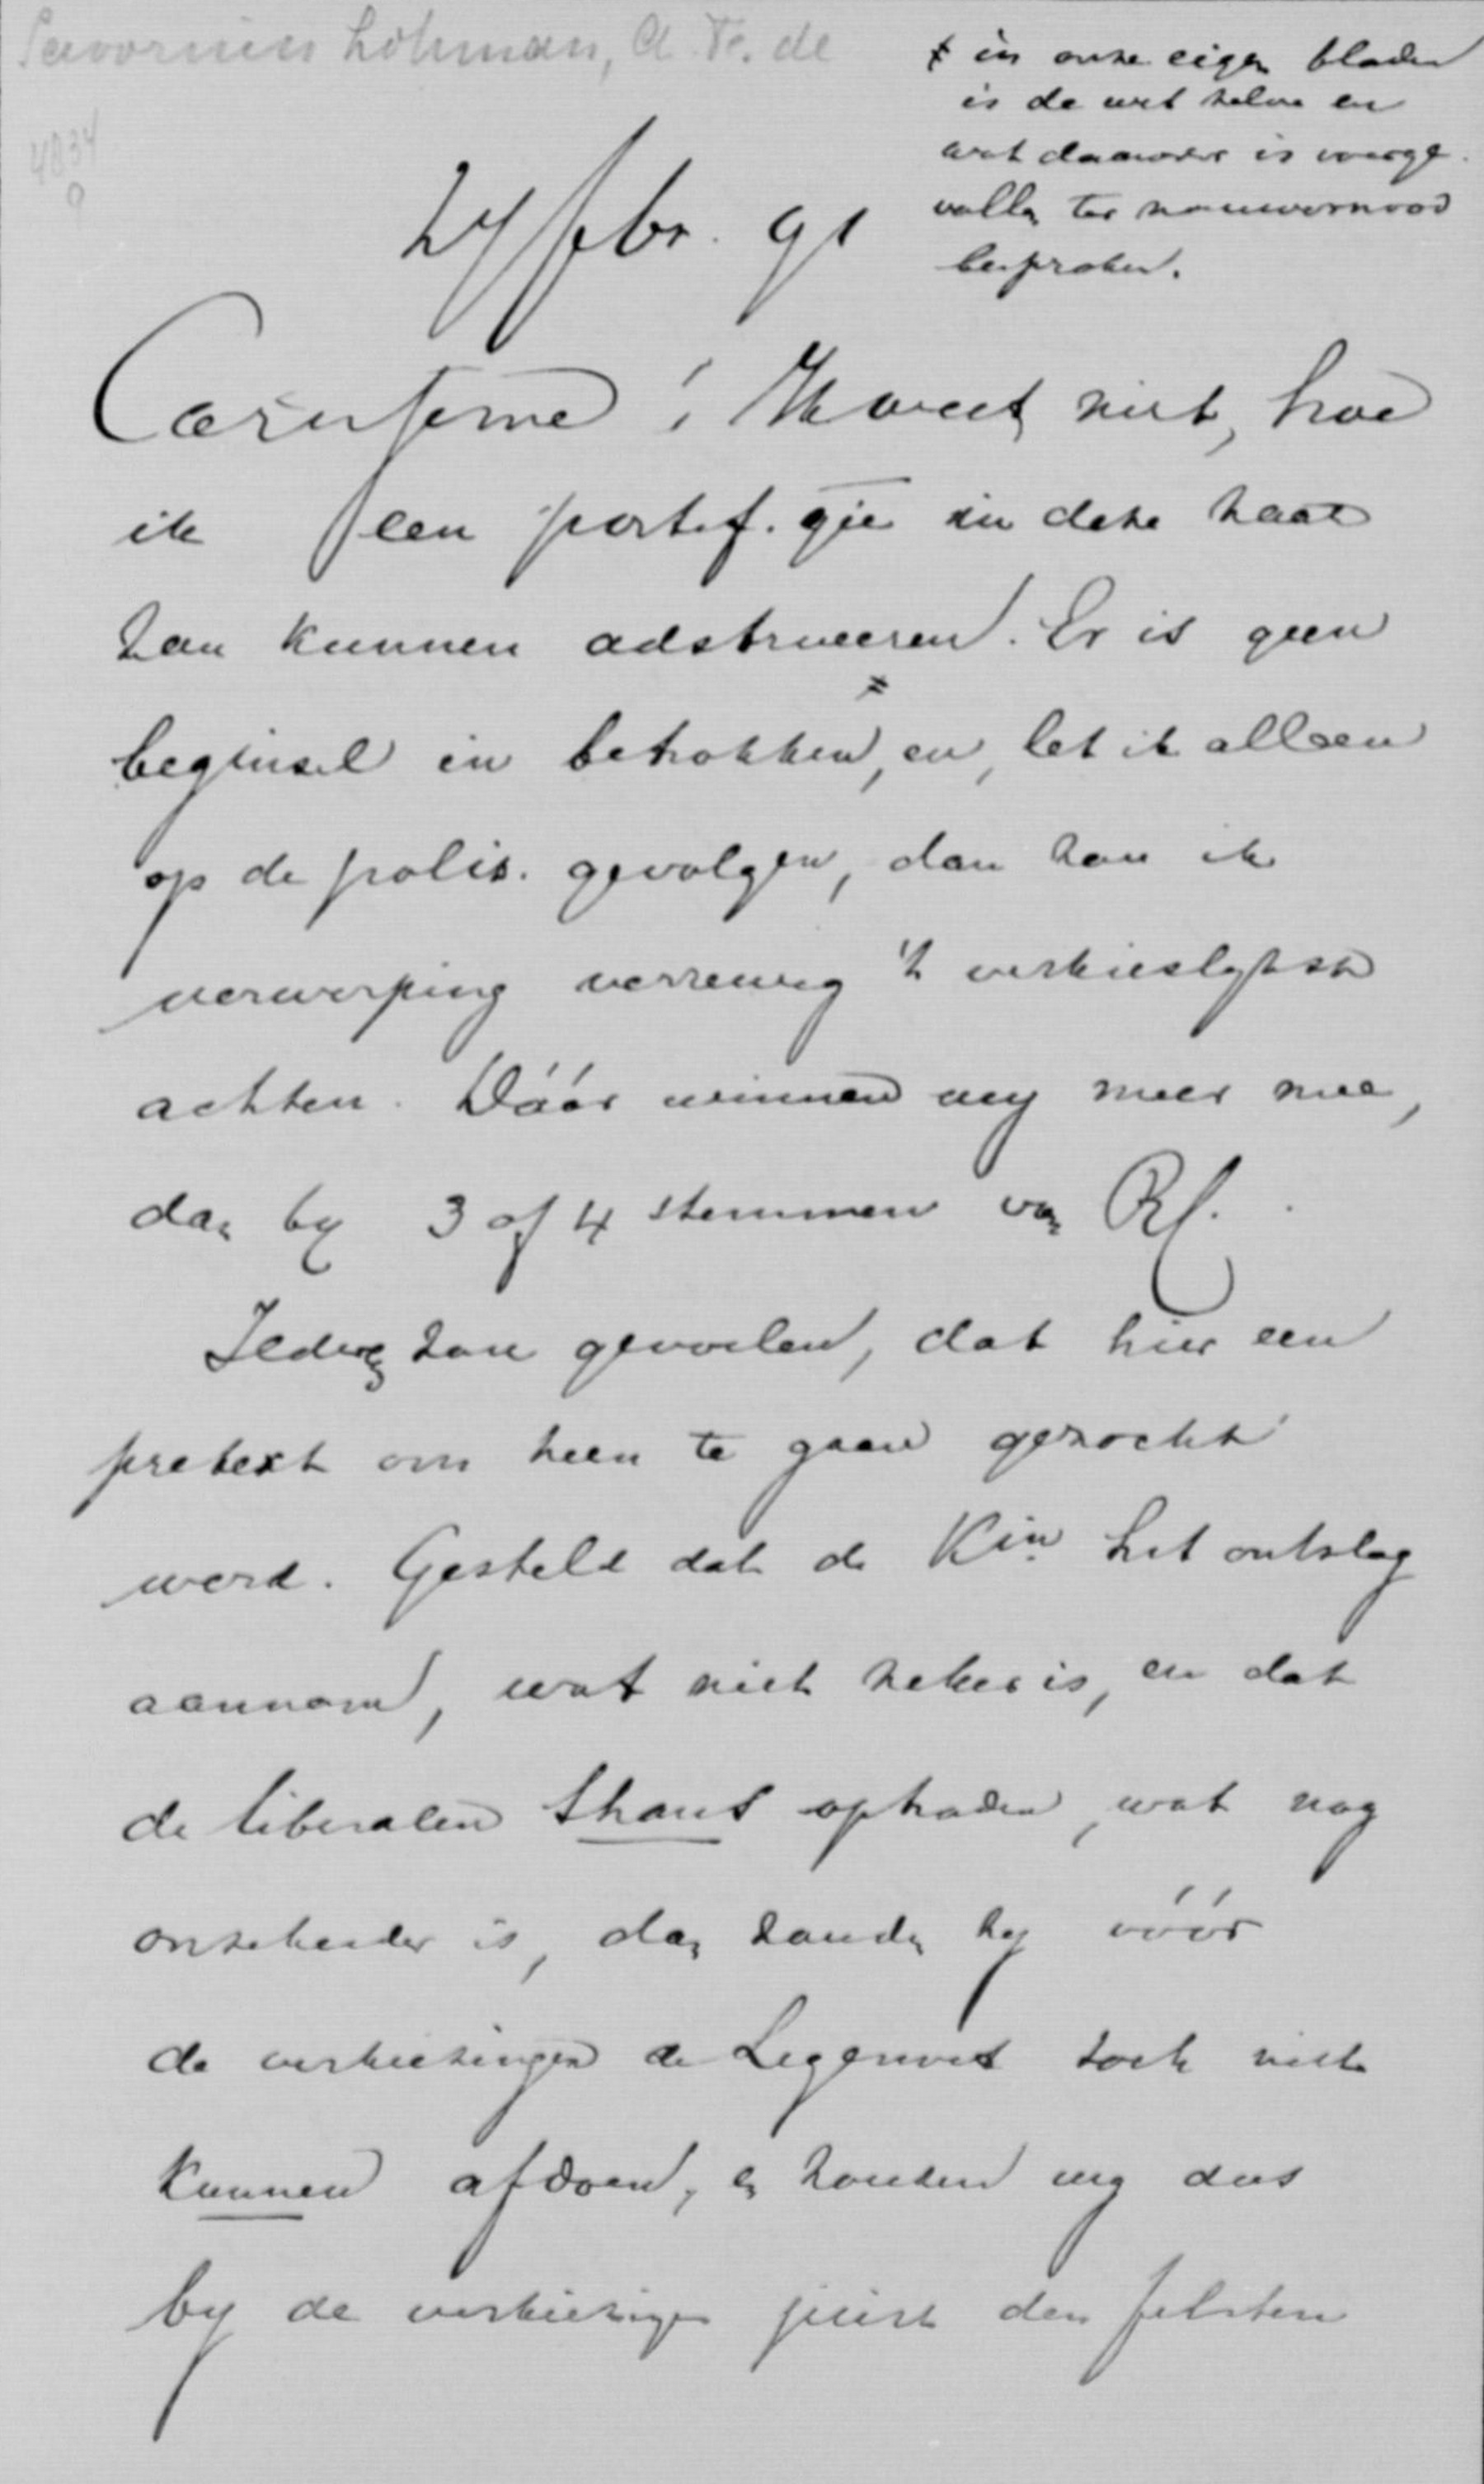 Savornin Lohman, A. F. de
4834
9
≠ in onze eigen bladen
is de wet zelve en
wat daarover is voorge-
vallen ter nauwernood
besproken.
27 febr. 91
Carissime! Ik weet niet, hoe
ik een portef. qie in deze zaak
zou kunnen adstrueeren. Er is geen
beginsel in betrokken≠, en, let ik alleen
op de polit. gevolgen, dan zou ik
verwerping verreweg 't verkieslykste
achten. Dáár winnen wy meer mee,
dan by 3 of 4 stemmen van
Iedereen zou gevoelen, dat hier een
pretext om heen te gaan gezocht
werd. Gesteld dat de Kin. het ontslag
aannam, wat niet zeker is, en dat
de liberalen thans optraden, wat nog
onzekerder is, dan zouden zy vóór
de verkiezingen de Legerwet toch niet
kunnen afdoen, en zouden wy dus
by de verkiezingen juist den felsten